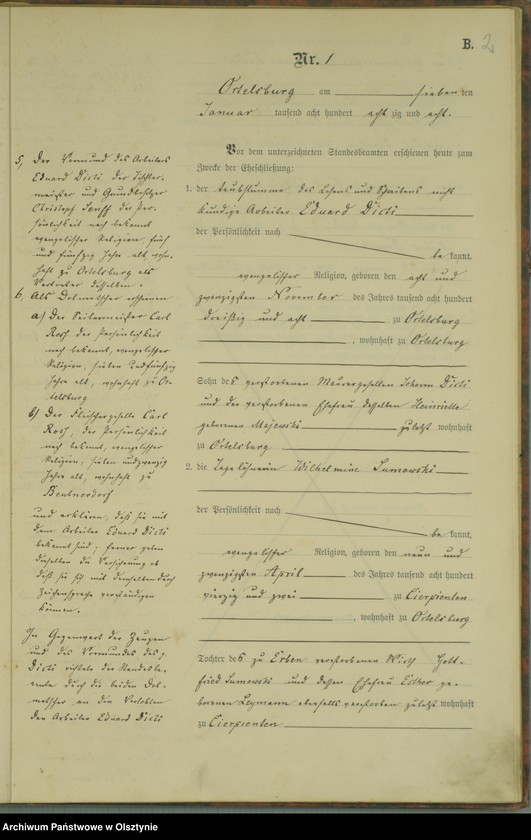 B. 2
Nr. 1
Ortelsburg am sieben ten
Januar tausend acht hundert acht zig und acht.
Vor dem unterzeichneten Standesbeamten erschienen heute zum
Zwecke der Eheschließung:
1. der taubstumme des Lesens und Schreibens nicht
kundige Arbeiter Eduard Dicti
der Persönlichkeit nach
be kannt,
evangelischer Religion, geboren den acht und
zwanzigsten November des Jahres tausend acht hundert
dreißig und acht zu Ortelsburg
, wohnhaft zu Ortelsburg
Sohn des verstorbenen Maurergesellen Johann Dicti
und der verstorbenen Ehefrau desselben Henriette
geborenen Majewski zuletzt wohnhaft
zu Ortelsburg
2. die Tagelöhnerin Wilhelmine Sumowski
der Persönlichkeit nach
be kannt,
evangelischer Religion, geboren den neun und
zwanzigsten April des Jahres tausend acht hundert
vierzig und zwei zu Cierpienten
, wohnhaft zu Ortelsburg
Tochter des zu Erben verstorbenen Wirth Gott-
fried Sumowski und dessen Ehefrau Esther ge-
borenen Legmann ebenfalls verstorben zuletzt wohnhaft
zu Cierpienten
5, Der Vormund des Arbeiters
Eduard Dicti der Tischler-
meister und Grundbesitzer
Christoph der Per-
sönlichkeit nach bekannt
evangelischer Religion, fünf
und fünfzig Jahre alt, wohn-
haft zu Ortelsburg als
Vertreter desselben.
6. Als Dolmetscher erschienen
a) Der Seilermeister Carl
Rosch der Persönlichkeit
nach bekannt, evangelischer
Religion, sieben und fünfzig
Jahre alt, wohnhaft zu Or-
telsburg
b) Der Fleischergeselle Carl
Rosch, der Persönlichkeit
nach bekannt, evangelischer
Religion, sieben und zwanzig
Jahre alt, wohnhaft zu
Beutnerdorf
und erklären, daß sie mit
dem Arbeiter Eduard Dicti
bekannt sind; ferner geben
dieselben die Versicherung ab
daß sie sich mit demselben durch
Zeichensprache verständigen
können.
In Gegenwart der Zeugen
und des Vormundes des p.
Dicti richtete der Standesbe-
amte durch die beiden Dol-
metscher an den Verlobten
den Arbeiter Eduard Dicti
Archiwum Państwowe w Olsztynie